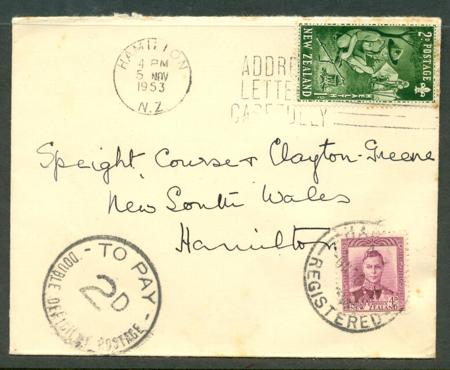 HAMILTON
4 PM
5 NOV
1953
N.Z
ADDRE
LETTE
CAREFULLY
2D POSTAGE
NEW ZEALAND
HEALTH
Speight, Course & Clayton-Greene
New South Wales
Hamilton
TO PAY
2D
DOUBLE DEFICIENT POSTAGE
REGISTERED
NEW ZEALAND